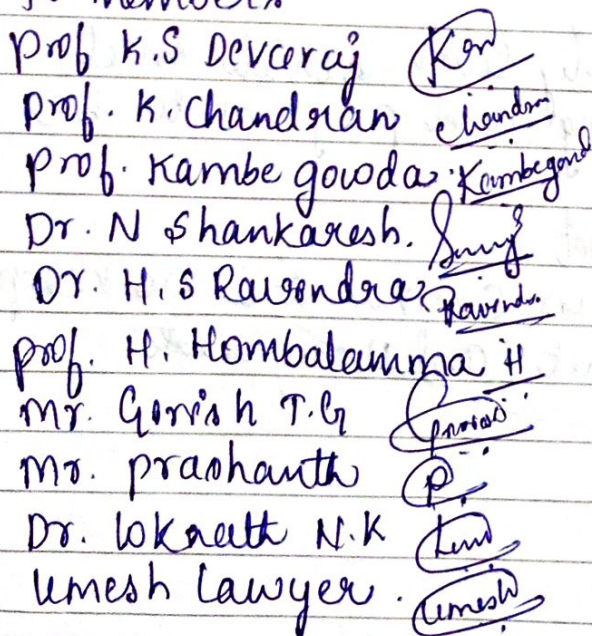 Prof K.S Devaraj
Prof. K. Chandran Chandran
Prof. Kambe gowda. Kambegowd
Dr. N Shankaresh.
Dr. H.S Raveendra Ravindra
Prof. H. Hombalamma H
Mr. Girish T.G
Mr. Prashanth P
Dr. Loknath N.K
Umesh Lawyer. Umesh